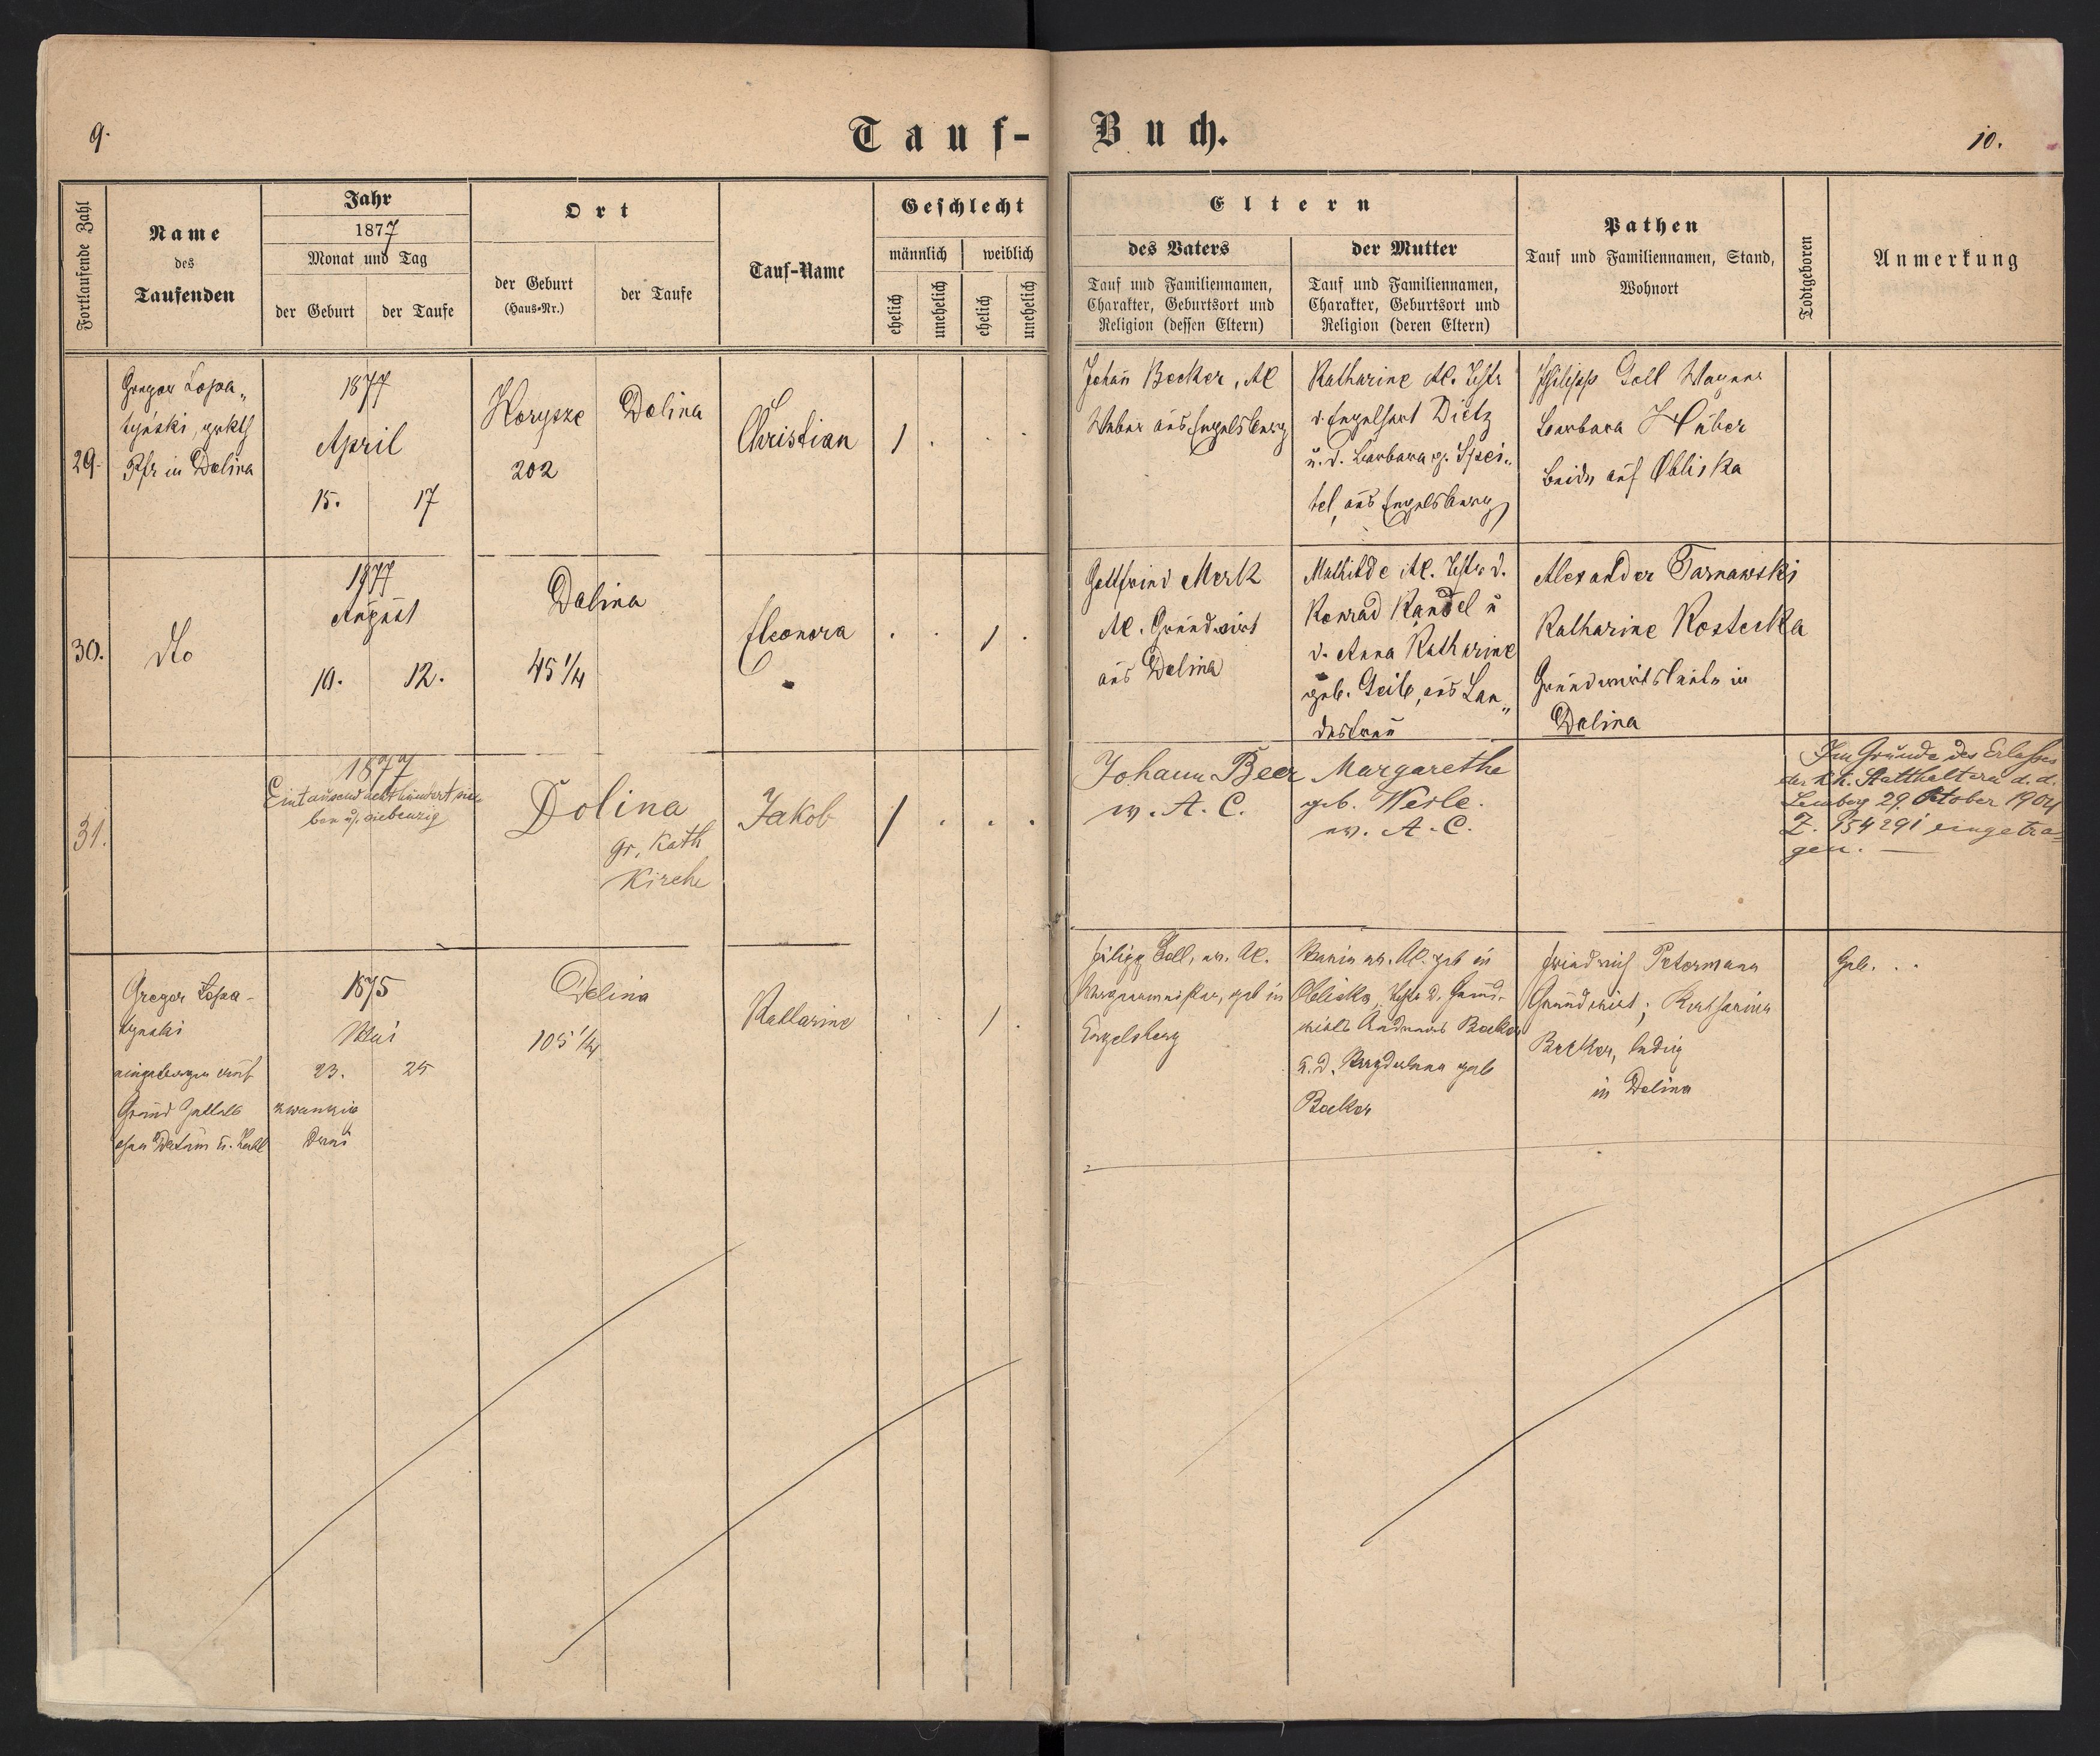 9.
Tauf-
Buch.
10.
Fortlaufende Zahl
Name
des
Taufenden
Jahr
1877
Monat und Tag
der Geburt
der Taufe
Ort
der Geburt
(Haus-Nr.)
der Taufe
Tauf-Name
Geschlecht
männlich
weiblich
ehelich
unehelich
ehelich
unehelich
Eltern
des Vaters
Tauf und Familiennamen,
Charakter, Geburtsort und
Religion (dessen Eltern)
der Mutter
Tauf und Familiennamen,
Charakter, Geburtsort und
Religion (deren Eltern)
Pathen
Tauf und Familiennamen, Stand,
Wohnort
Todtgeboren
Anmerkung
29.
Gregor Lopa„
tyński, grkth
Pfr in Dolina
1877
April
15.
17
202
Dolina
Christian
1 . . .
Johañ Becker, AC
Weber aus Engelsberg
Katharine AC. Tchtr
d. Engelhart Dietz
u. d. Barbara g. Spei„
tel, aus Engelsberg
Philipp Goll Wagner
Barbara Huber
beide auf Obliska
30.
dto
1877
August
10.
12.
Dolina
45 1/4
Eleonora
. . 1 .
Gottfried Merk
AC. Grundwirt
aus Dolina
Mathilde AC. Tchtr d.
Konrad Kandel u
d. Anna Katharine
geb. Geib, aus Lan„
destreu
Alexander Tarnawski
Katharine Kostecka
Grundwirtsleute in
Dolina
31.
1877
Eintausend achthundert sie-
ben u. siebenzig
Dolina
gr. Kath
Kirche
Jakob
1 . . .
Johann Beer
ev. A. C.
Margarethe
geb. Werle.
ev. A. C.
Im Grunde des Erlasses
der k.k. Statthalterei d. d.
Lemberg 29. Oktober 1904
Z. 154291 eingetra-
gen. —
Gregor Lopa-
tynski
eingetragen auf
Grund Zettels
ohne Datum u. Zahl
1875
Mai
23.
25
zwanzig
Drei
Dolina
105 1/4
Katharine
. . 1 .
Filipp Goll, ev. AC.
geb in
Engelsberg
ev. AC. geb in
Obliska, Tchtr d. Grund-
wirts Andreas Becker
u. d. Magdalena geb
Becker
Friedrich Petermann
Grundwirt; Katharina
Becker, ledig
in Dolina
Geb. . .